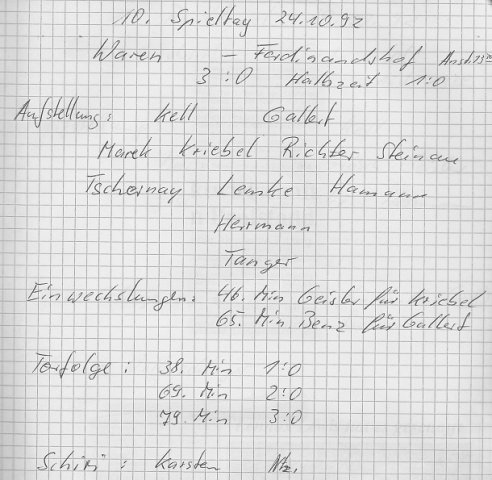 10. Spieltag 24.10.92
Waren - Ferdinandshof Anst. 13 00
3:0 Halbzeit 1:0
Aufstellung: Kell Gallert
Marek Kriebel Richter Steinau
Tschernay Lemke Hamann
Herrmann
Tanger
Einwechslungen: 46. Min Geisler für Kriebel
65. Min Benz für Gallert
Torfolge: 38. Min 1:0
69. Min 2:0
79. Min 3:0
Schiri: Karsten Ntz.